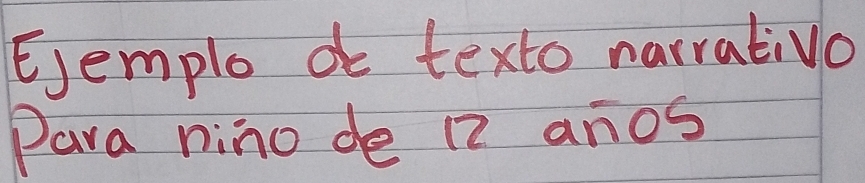 Ejemplo de texto narrativo
Para niño de 12 años